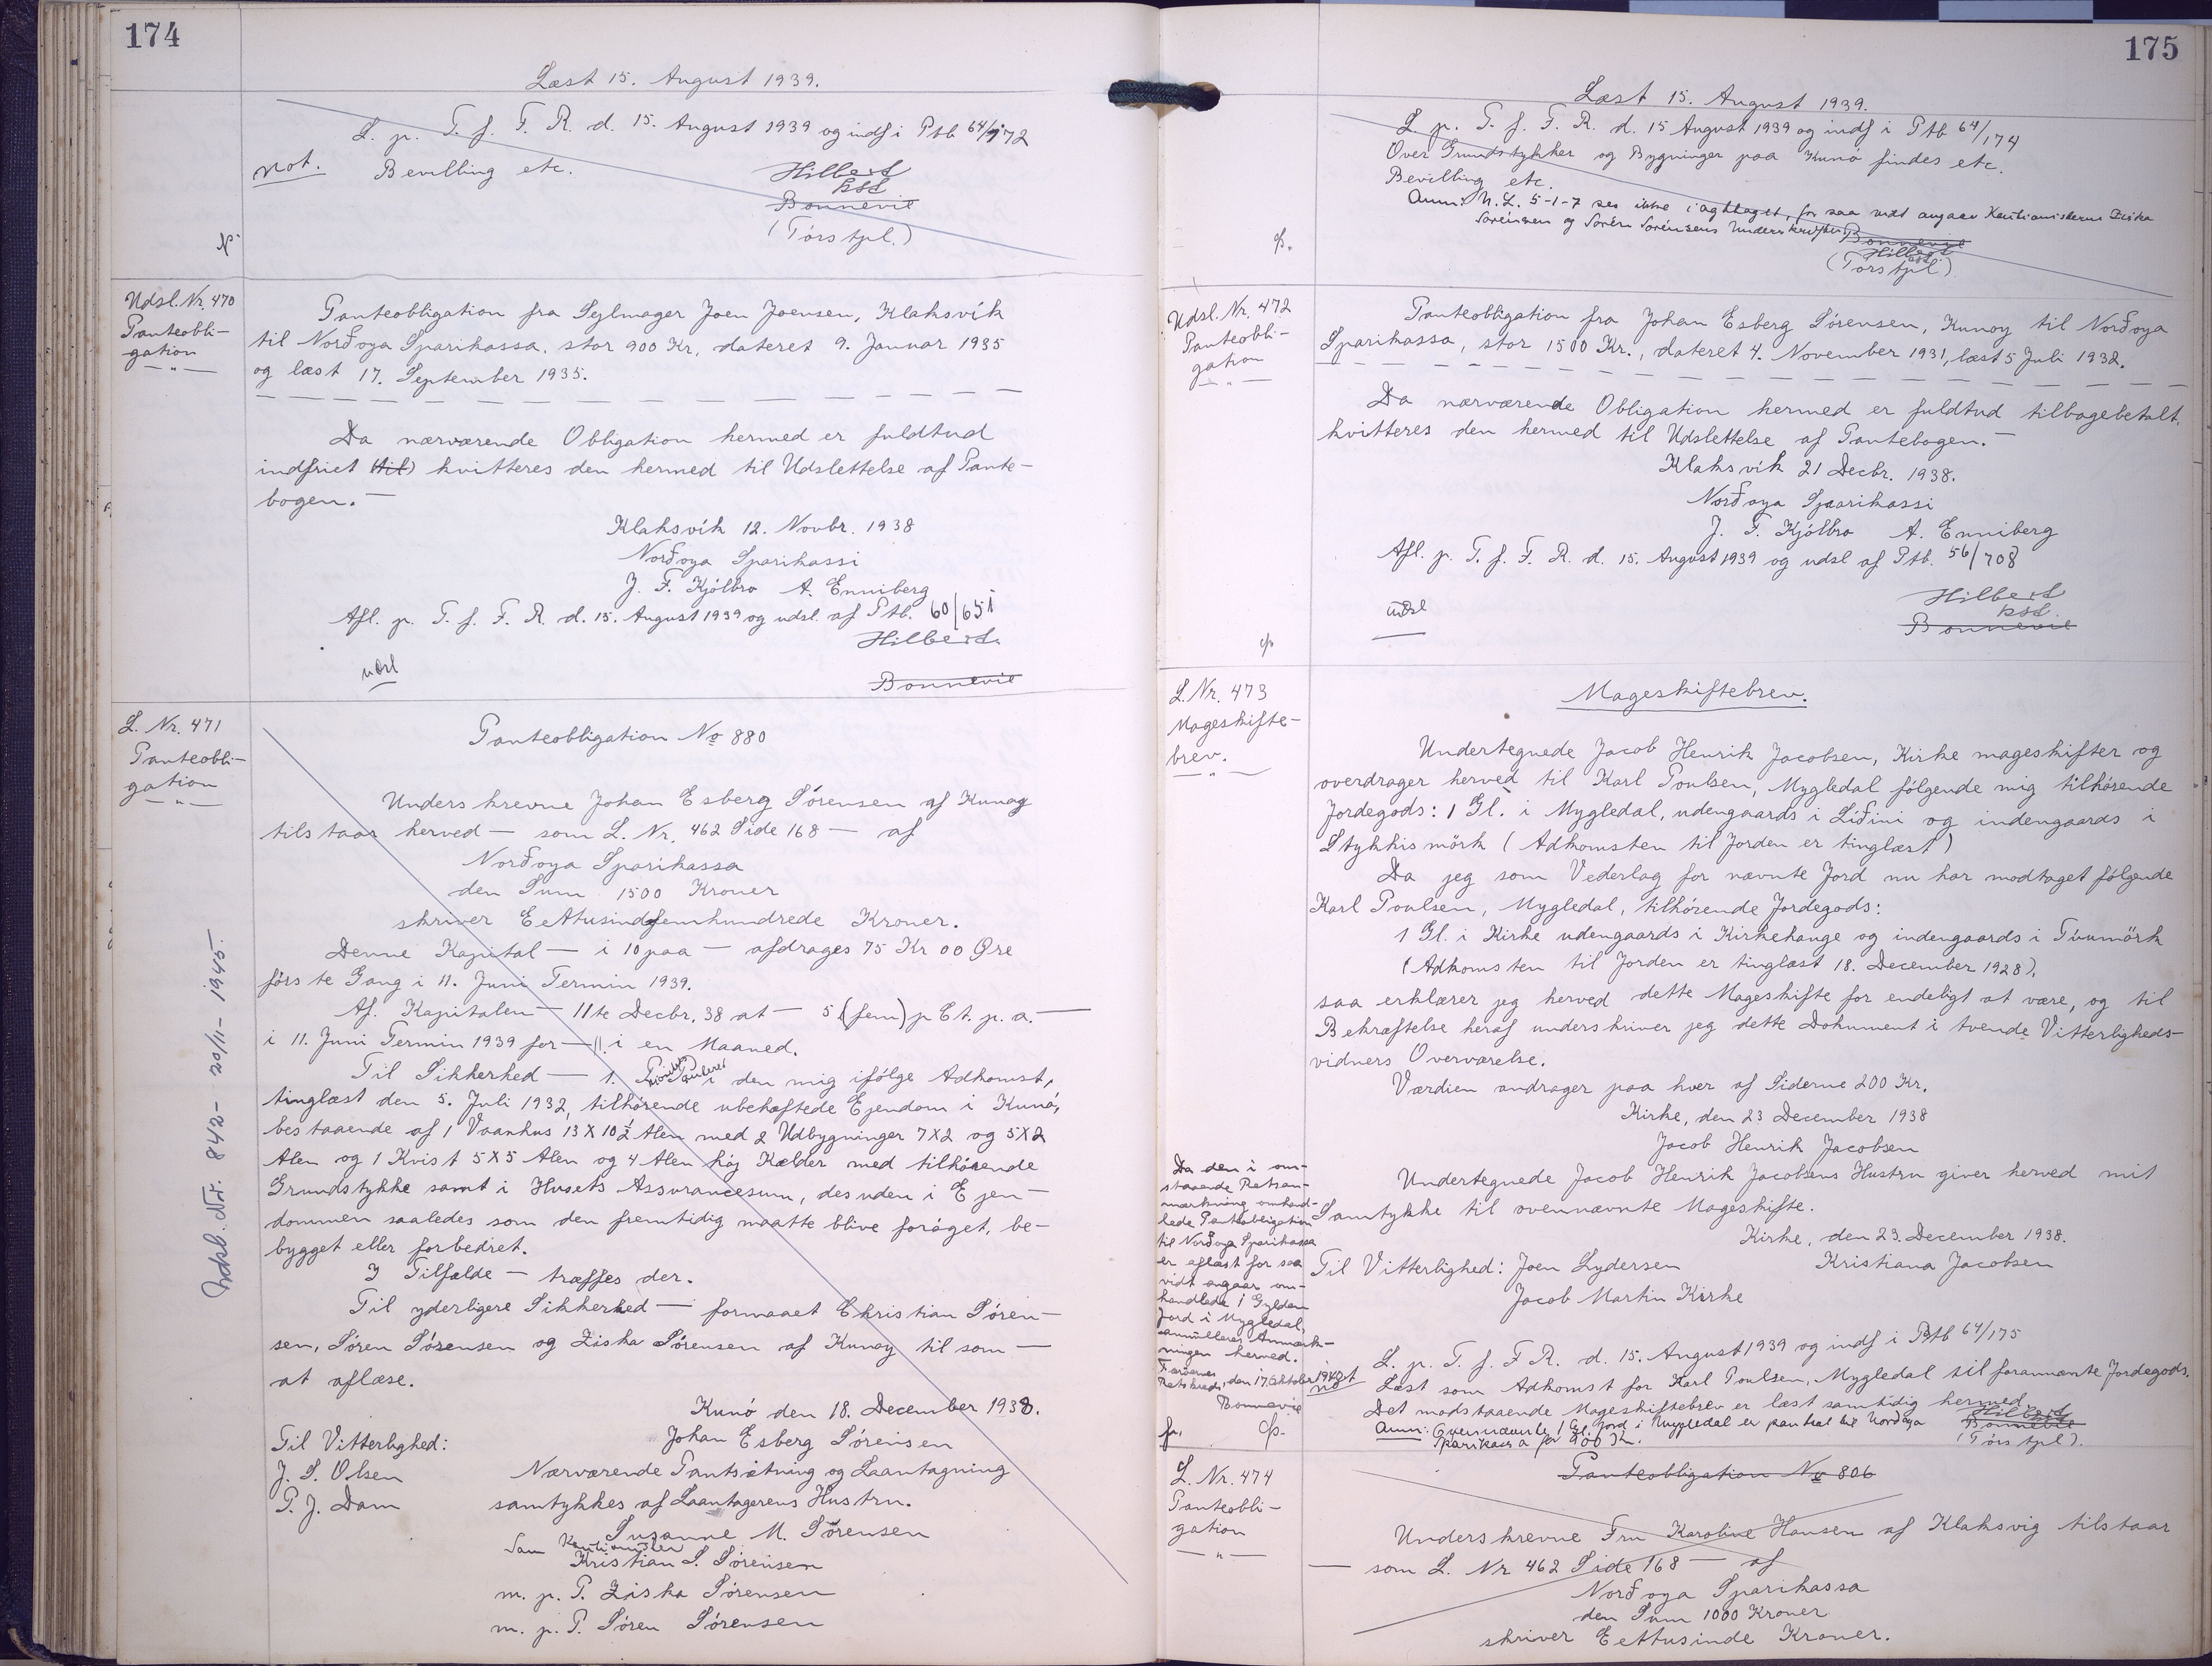 174
Læst 15. August 1939.
L. p. T. f. F. R. d. 15. August 1939 og indf i Ptb 64/172
not. Bevilling etc.
Hilbert
kst
Bonnevie
(Tórs tpl.)
Udsl. Nr. 470
Panteobli-
gation
— " —
Panteobligation fra Sejlmager Joen Joensen, Klaksvík
til Norðoya Sparikassa, stor 900 Kr, dateret 9. Januar 1935
og læst 17. September 1935.
Da nærværende Obligation hermed er fuldtud
indfriet (til) kvitteres den hermed til Udslettelse af Pante-
bogen. —
Klaksvík 12. Novbr. 1938
Norðoya Sparikassi
J. F. Kjólbro A. Enniberg
Afl. p. T. f. F. R. d. 15. August 1939 og udsl. af Ptb. 60/651
Hilbert.
udsl
Bonnevie
L. Nr. 471
Panteobli-
gation
— " —
Panteobligation No 880
Underskrevne Johan Esberg Sórensen af Kunoy
tilstaar herved — som L. Nr. 462 Side 168 — af
Norðoya Sparikassa
den Sum 1500 Kroner
skriver Eettusindfemhundrede Kroner.
Denne Kapital — i 10 paa — afdrages 75 Kr 00 Øre
fórste Gang i 11. Juni Termin 1939.
Af. Kapitalen — 11te Decbr. 38 at — 5 (fem) p Ct. p. a. —
i 11. Juni Termin 1939 for — 11. i en Maaned.
Til Sikkerhed — 1. Prioritets Panteret i den mig ifólge Adkomst,
tinglæst den 5. Juli 1932, tilhórende ubehæftede Ejendom i Kunó,
bestaaende af 1 Vaanhus 13 X 10½ Alen med 2 Udbygninger 7X2 og 5X2
Alen og 1 Kvist 5X5 Alen og 4 Alen hój Kælder med tilhórende
Grundstykke samt i Husets Assurancesum, desuden i Ejen-
dommen saaledes som den fremtidig maatte blive foróget, be-
bygget eller forbedret.
I Tilfælde — træffes der.
Til yderligere Sikkerhed — formaaet Christian Sóren-
sen, Sóren Sórensen og Ziska Sórensen af Kunoy til som —
at aflæse.
Kunó den 18. December 1938.
Johan Esberg Sórensen
Til Vitterlighed:
J. S. Olsen
P. J. Dam
Nærværende Pantsætning og Laantagning
samtykkes af Laantagerens Hustru.
Susanne M. Sórensen
Som Kautionister
Kristian S. Sórensen
m. p. P. Ziska Sórensen
m. p. P. Sóren Sórensen
Udsl. Nr. 842 - 20/11 - 1945.
175
Læst 15. August 1939.
L. p. T. f. F. R. d. 15 August 1939 og indf i Ptb 64/174
Over Grundstykker og Bygninger paa Kunó findes etc.
Bevilling etc.
Anm: N. L. 5-1-7 ses ikke iagttaget, for saa vidt angaar Kautionisterne Ziska
Sorensen og Sorén Sorénsens Underskrifter.
Bonnevie
Hilbert
kst.
(Tors tpl)
Udsl. Nr. 472
Panteobli-
gation
— " —
Panteobligation fra Johan Esberg Sórensen, Kunoy til Norðoya
Sparikassa, stor 1500 Kr., dateret 4. November 1931, læst 5 Juli 1932.
Da nærværende Obligation hermed er fuldtud tilbagebetalt,
kvitteres den hermed til Udslettelse af Pantebogen. —
Klaksvík 21 Decbr. 1938.
Norðoya Sparikassi
J. F. Kjólbro A. Enniberg
Afl. p. T. f. F. R. d. 15. August 1939 og udsl af Ptb. 56/708
udsl
Hilbert
kst.
Bonnevie
L. Nr. 473
Mageskifte-
brev.
— " —
Mageskiftebrev.
Undertegnede Jacob Henrik Jacobsen, Kirke mageskifter og
overdrager herved til Karl Poulsen, Mygledal fólgende mig tilhórende
Jordegods: 1 Gl. i Mygledal, udengaards i Líðini og indengaards i
Stykkismörk (Adkomsten til Jorden er tinglæst)
Da jeg som Vederlag for nævnte Jord nu har modtaget fólgende
Karl Poulsen, Mygledal, tilhórende Jordegods:
1 Gl. i Kirke udengaards i Kirkehauge og indengaards i Túnmörk
(Adkomsten til Jorden er tinglæst 18. December 1928).
saa erklærer jeg herved dette Mageskifte for endeligt at være, og til
Bekræftelse heraf underskriver jeg dette Dokument i tvende Vitterligheds-
vidners Overværelse.
Værdien andrager paa hver af Siderne 200 Kr.
Kirke, den 23 December 1938
Jacob Henrik Jacobsen
Undertegnede Jacob Henrik Jacobsens Hustru giver herved mit
Samtykke til ovennævnte Mageskifte.
Kirke, den 23. December 1938.
Til Vitterlighed: Joen Lydersen Kristiana Jacobsen
Jacob Martin Kirke
Da den i om-
staaende Retsan-
mærkning omhand-
lede Panteobligation
til Norðoya Sparikassa
er aflæst for saa
vidt angaar om-
handlede 1 Gylden
Jord i Mygledal,
annulleres Anmærk-
ningen herved.
Færóernes
Retskreds, den 17. Oktober
Bonnevie
L. p. T. f. F R. d. 15. August 1939 og indf i Ptb 64/175
Læst som Adkomst for Karl Poulsen, Mygledal til forannævnte Jordegods.
Det modstaaende Mageskiftebrev er læst samtidig hermed.
Anm: Ovennævnte 1 Gl. Jord i Mygledal er pantsat til Norðoya
Sparikassa for
Hilbert
Bonnevie
(Tórs tpl).
L. Nr. 474
Panteobli-
gation
— " —
Panteobligation No 806
Underskrevne Fru Karoline Hansen af Klaksvig tilstaar
— som L. Nr 462 Side 168 — af
Norðoya Sparikassa
den Sum 1000 Kroner
skriver Eettusinde Kroner.